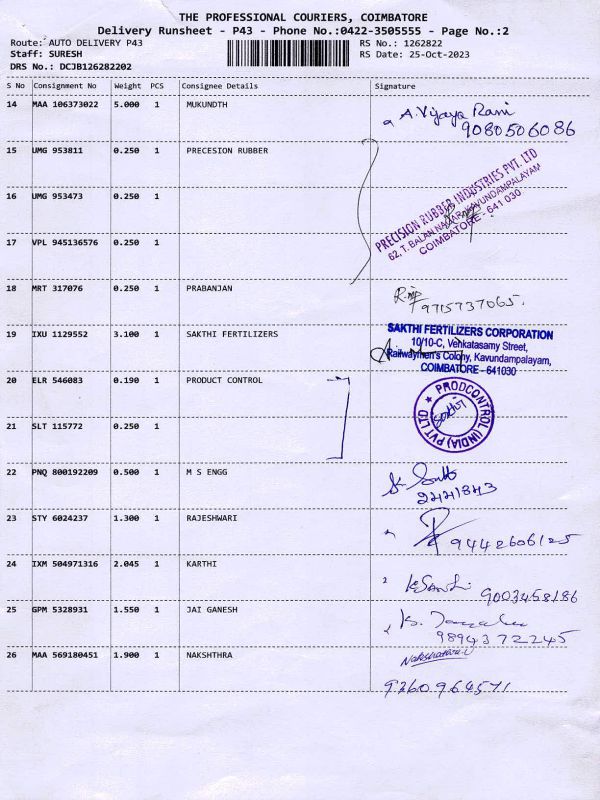 THE PROFESSIONAL COURIERS, COIMBATORE
Delivery Runsheet - P43 - Phone No.:0422-3505555 - Page No.:2
Route: AUTO DELIVERY P43 RS No.: 1262822
Staff: SURESH RS Date: 25-Oct-2023
DRS No.: DCJB126282202
S No Consignment No Weight PCS Consignee Details Signature
14 MAA 106373022 5.000 1 MUKUNDTH A. Vijaya Rani
9080506086
15 UMG 953811 0.250 1 PRECESION RUBBER
PRECISION RUBBER INDUSTRIES PVT. LTD
62, T. BALAN NAGAR, KAVUNDAMPALAYAM
COIMBATORE - 641 030
16 UMG 953473 0.250 1
17 VPL 945136576 0.250 1
18 MRT 317076 0.250 1 PRABANJAN
9715737065.
19 IXU 1129552 3.100 1 SAKTHI FERTILIZERS
SAKTHI FERTILIZERS CORPORATION
10/10-C, Venkatasamy Street,
Railwaymen's Colony, Kavundampalayam,
COIMBATORE - 641030
20 ELR 546083 0.190 1 PRODUCT CONTROL
PRODCONTROL (INDIA) PVT LTD
21 SLT 115772 0.250 1
22 PNQ 800192209 0.500 1 M S ENGG
2441843
23 STY 6024237 1.300 1 RAJESHWARI
9442606125
24 IXM 504971316 2.045 1 KARTHI
9003458186
25 GPM 5328931 1.550 1 JAI GANESH
9894372245
26 MAA 569180451 1.900 1 NAKSHTHRA
9360964571